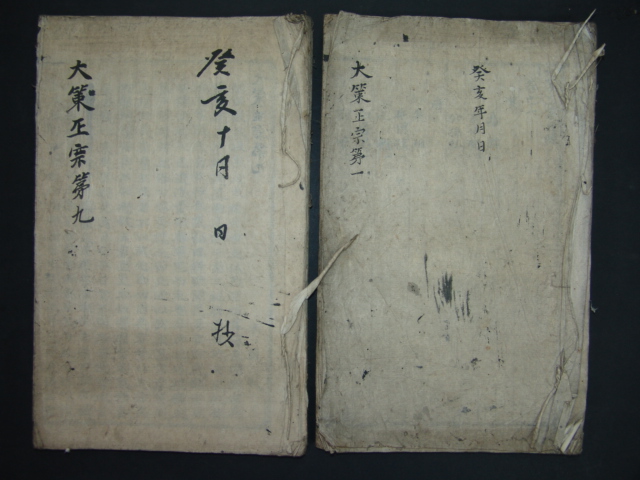 癸亥年月日
大策正宗第一
癸亥十月 日 抄
大策正宗第九